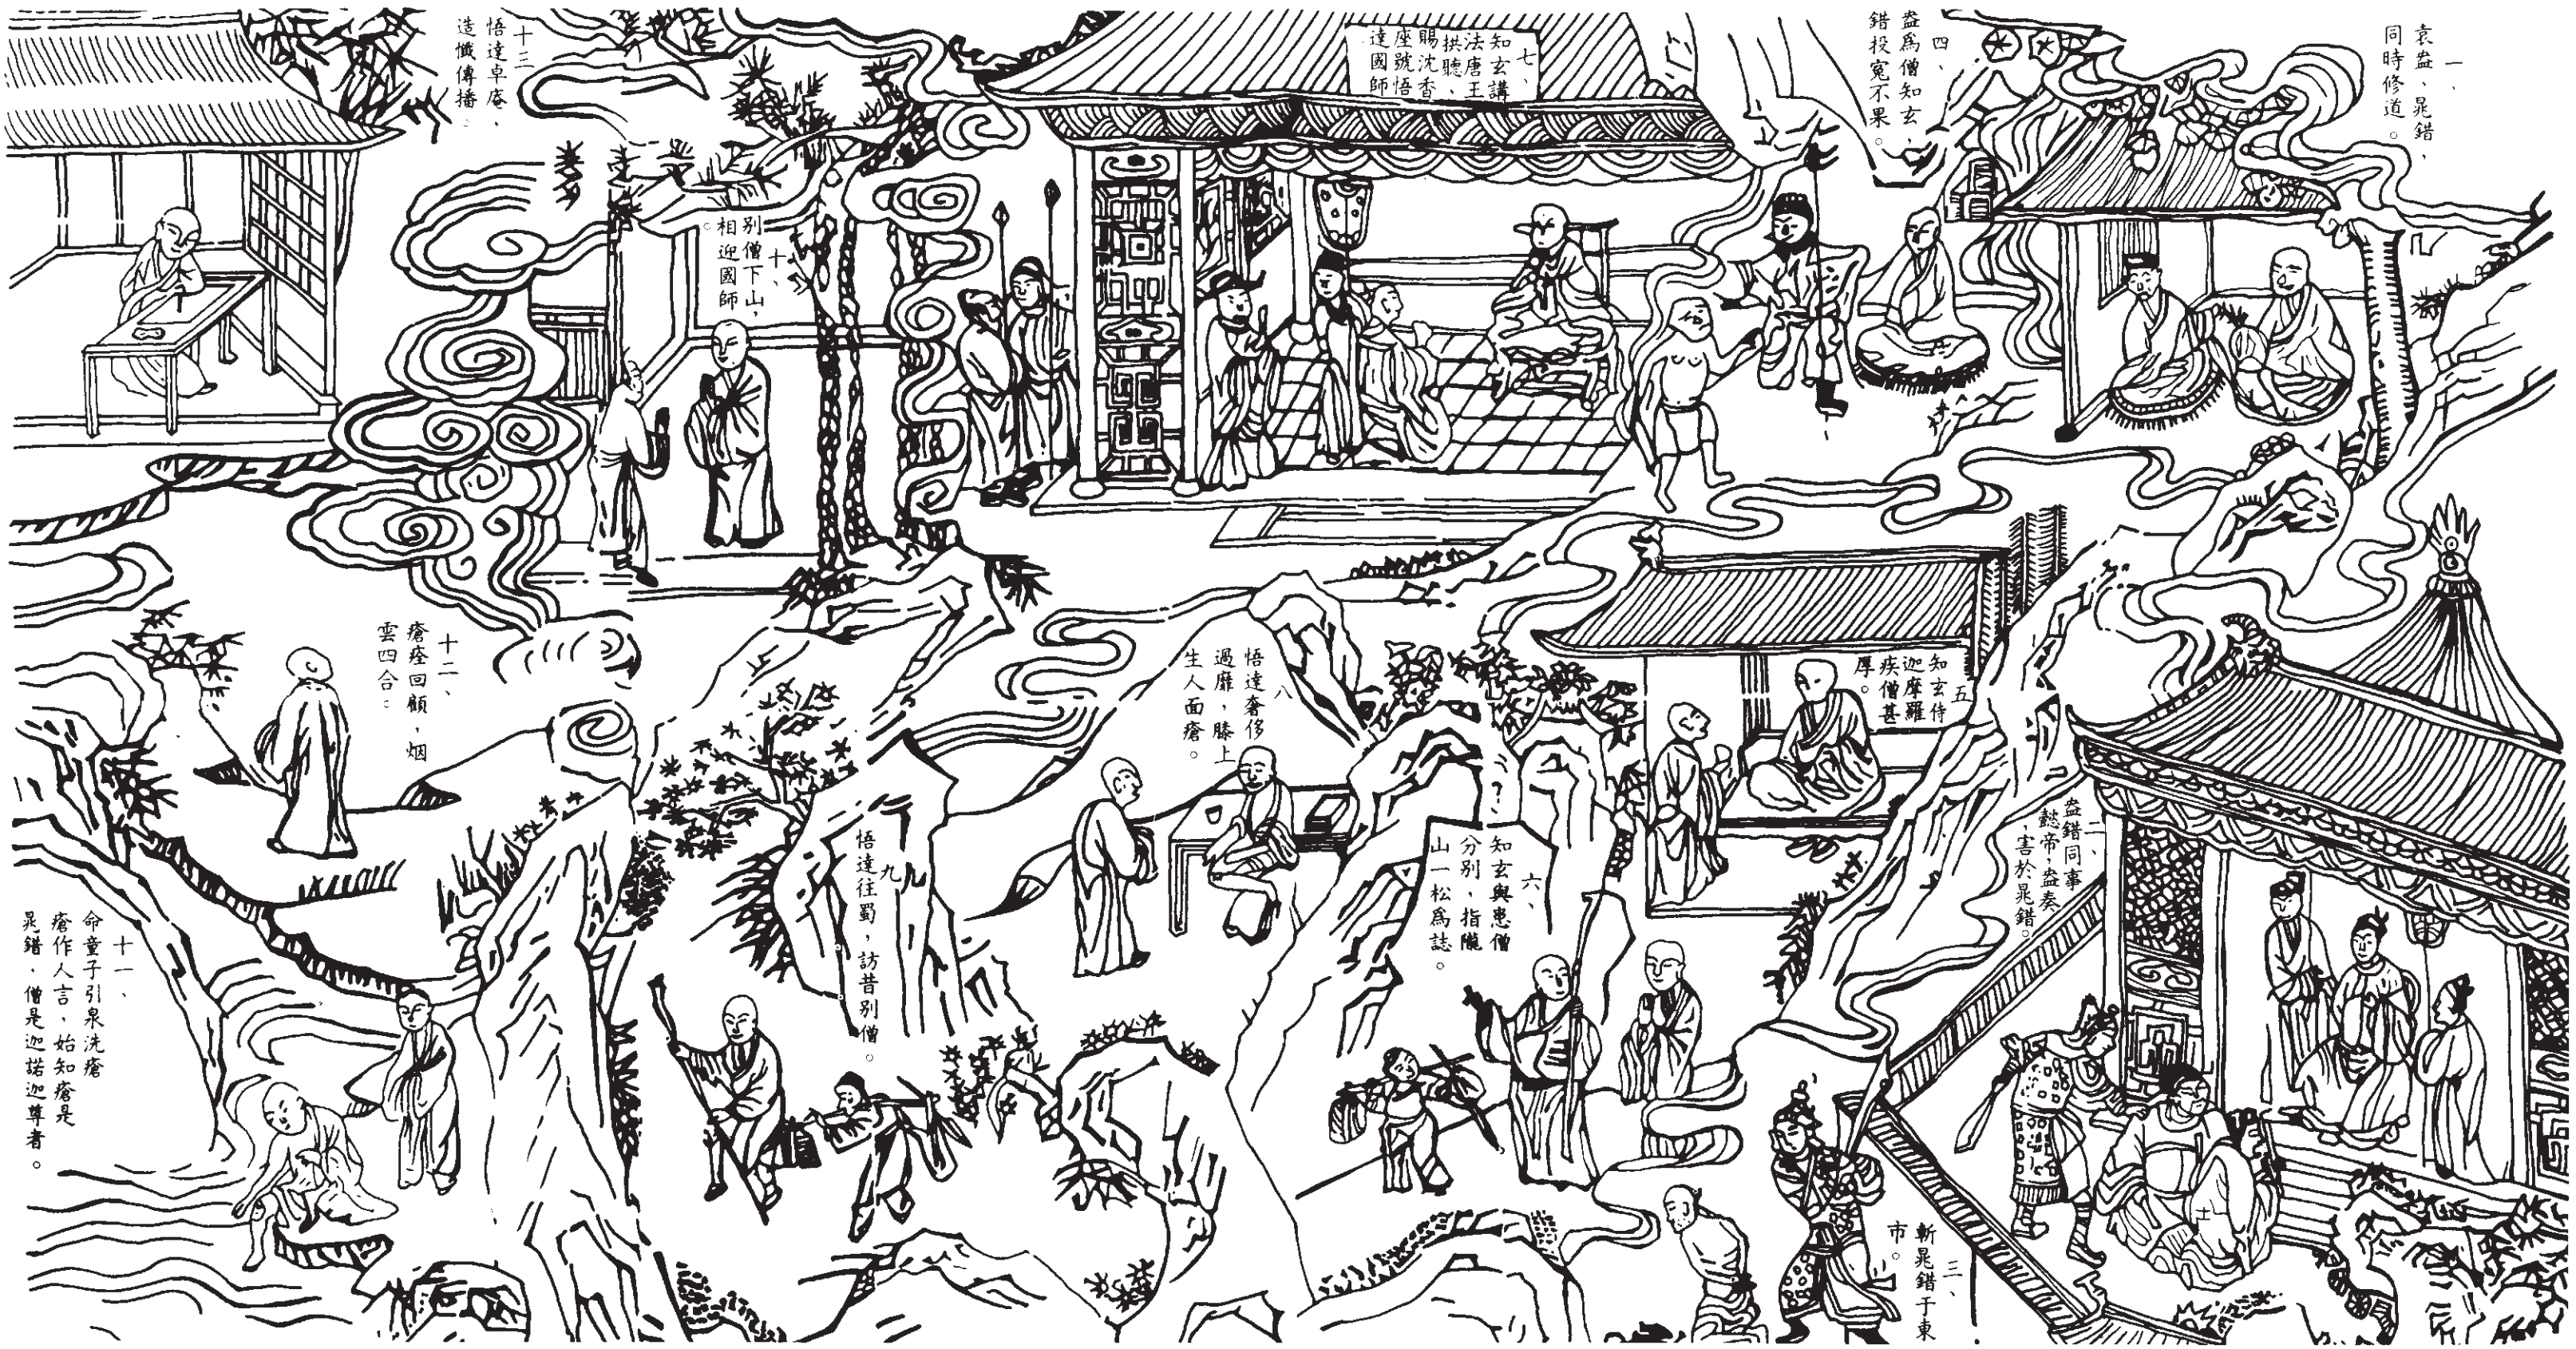 一、
袁盎、晁錯，
同時修道。
二、
盎錯同事
懿帝，盎奏
，害於晁錯。
三、
斬晁錯于東
市。
四、
盎爲僧知玄，
錯投冤不果。
五
知玄侍
迦摩羅
疾僧甚
厚。
六、
知玄與患僧
分别，指隴
山一松爲誌。
七、
知玄講
法唐王
拱聽、
賜沈香
座號悟
達國師
八
悟達奢侈
過靡，膝上
生人面瘡。
九
悟達往蜀，訪昔别僧。
十、
别僧下山，
相迎國師。
十一、
命童子引泉洗瘡
瘡作人言，始知瘡是
晁錯，僧是迦諾迦尊者。
十二、
瘡痊回顧，烟
雲四合。
十三
悟達卓庵，
造懺傳播。